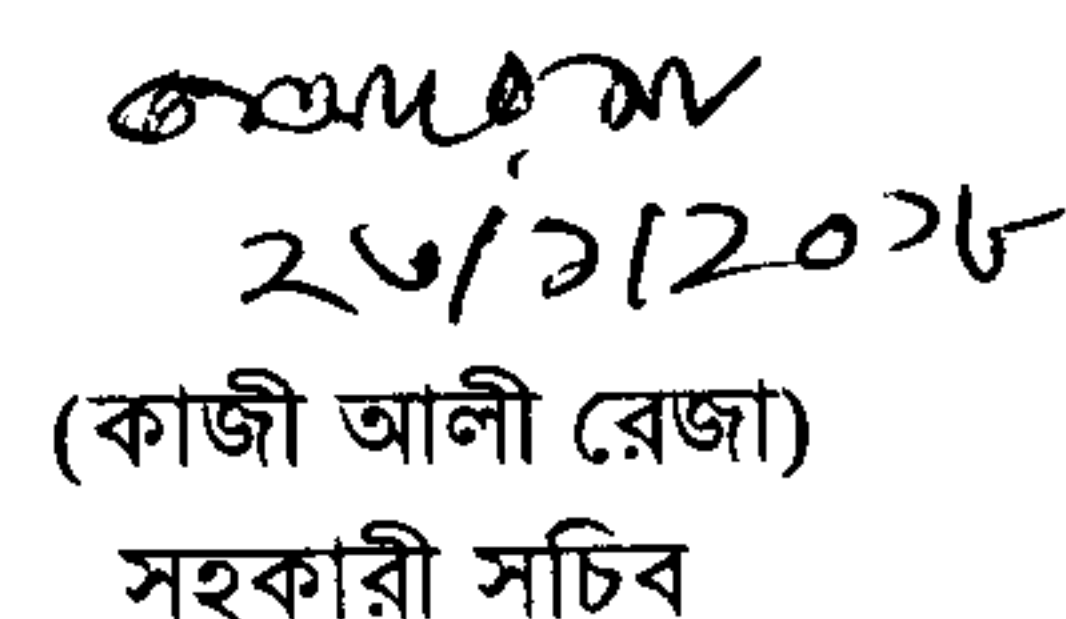 ২৩/১/২০১৮
(কাজী আলী রেজা)
সহকারী সচিব